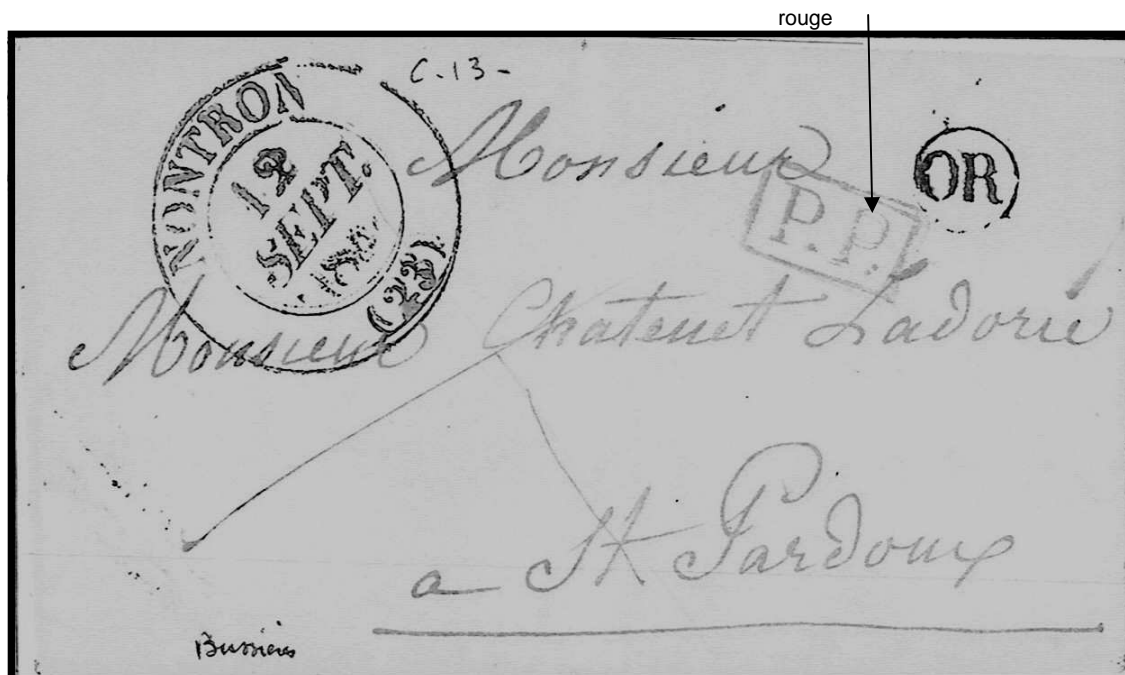 rouge
C. 13 -
NONTRON
12
SEPT.
(23)
Monsieur
OR
P.P.
Monsieur Chatenet Ladorie
a St Pardoux
Bussières